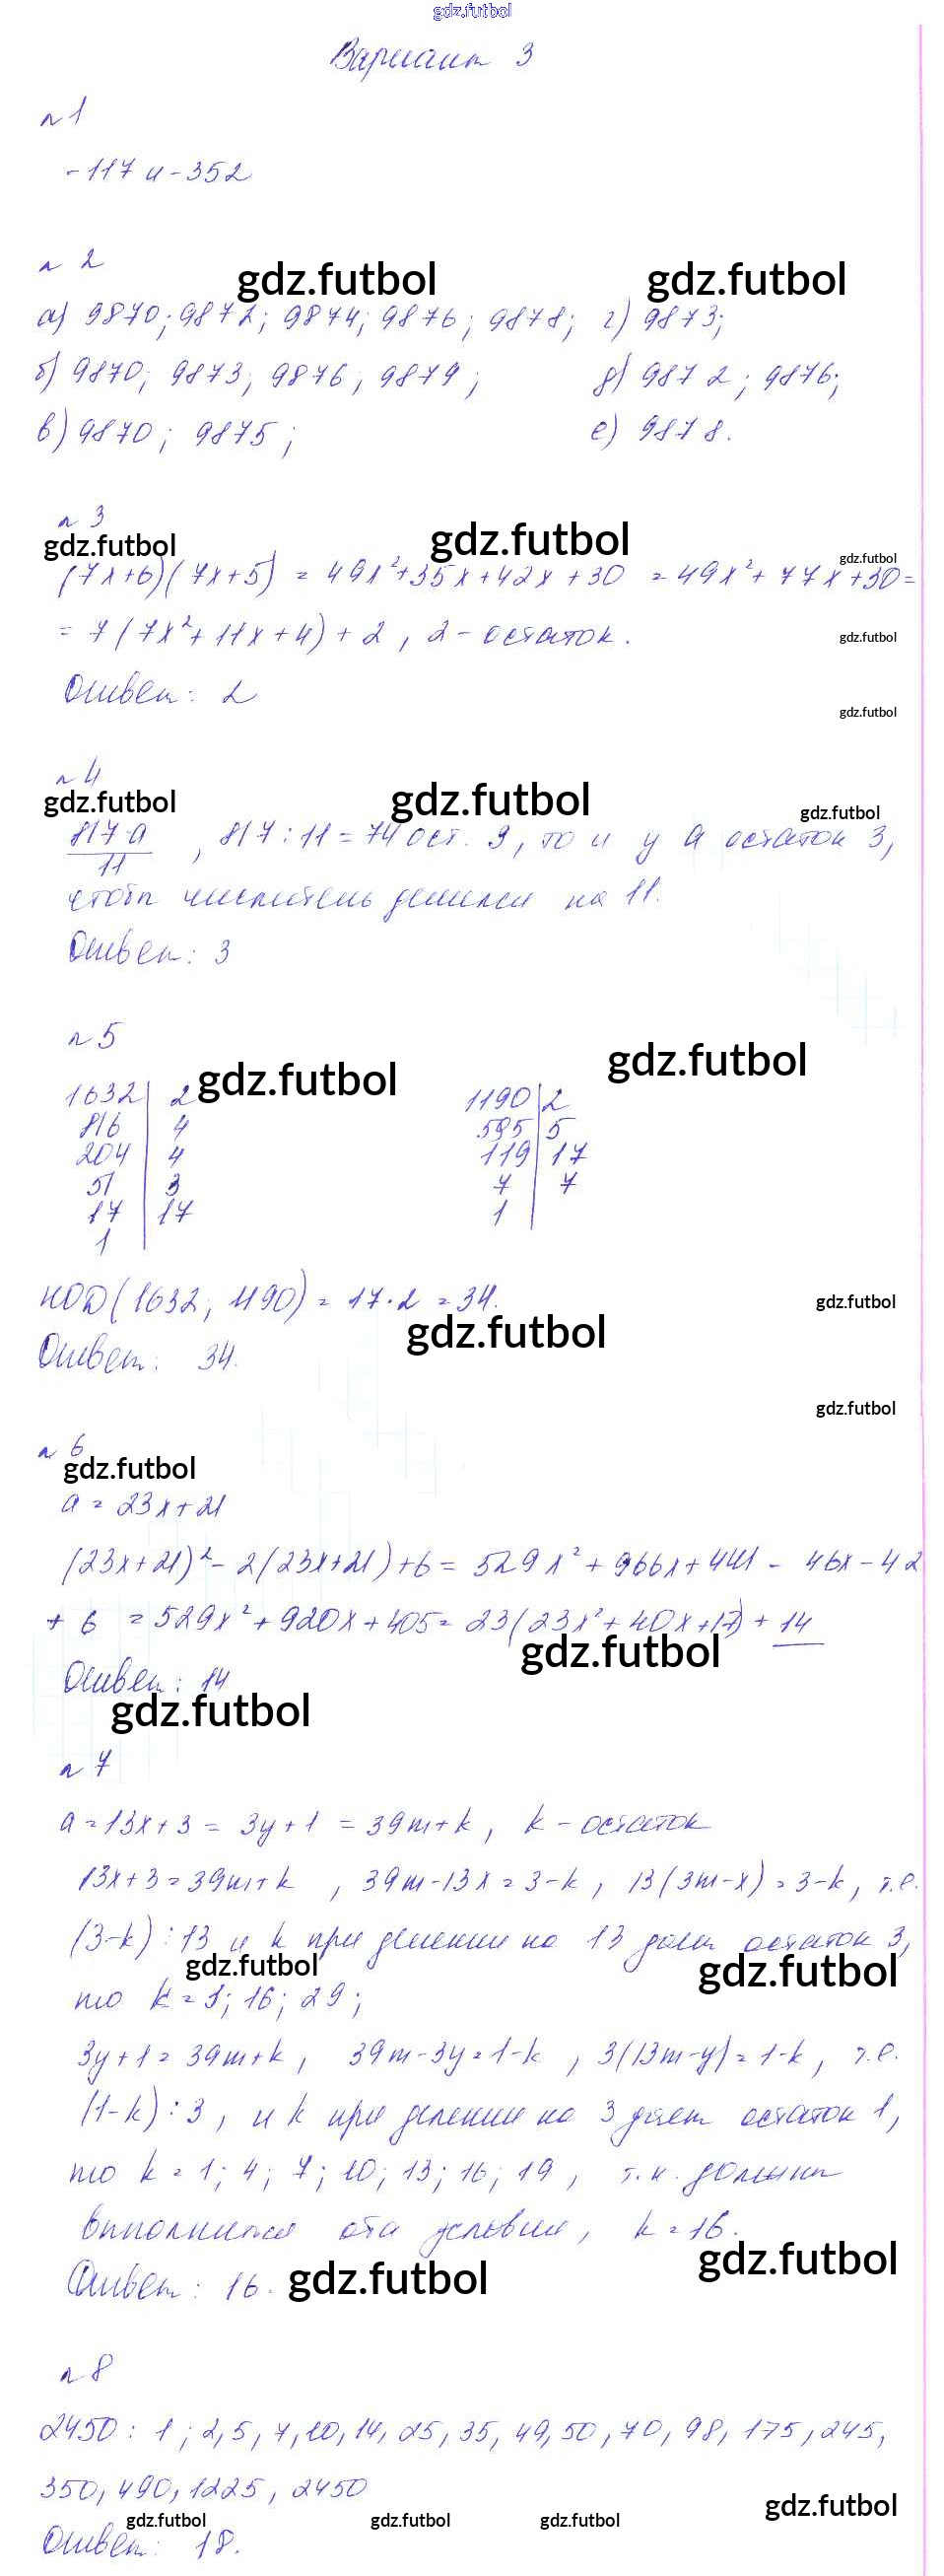 gdz.futbol
Вариант 3
n 1
-117 и -352
n 2
gdz.futbol gdz.futbol
а) 9870; 9872; 9874; 9876; 9878; г) 9873;
б) 9870; 9873; 9876; 9879; д) 9872; 9876;
в) 9870; 9875; е) 9878.
n 3
gdz.futbol gdz.futbol gdz.futbol
(7x+6)(7x+5) = 49x²+35x+42x+30 = 49x²+77x+30=
= 7(7x²+11x+4)+2, 2-остаток.
gdz.futbol
Ответ: 2
gdz.futbol
n 4
gdz.futbol gdz.futbol gdz.futbol
817·a/11, 817:11=74 ост. 3, то и у a остаток 3,
чтобы числитель делился на 11.
Ответ: 3
n 5
gdz.futbol gdz.futbol
1632|2 1190|2
816|4 595|5
204|4 119|17
51|3 7|7
17|17 1
1
НОД(1632; 1190) = 17·2 = 34.
gdz.futbol
gdz.futbol
Ответ: 34.
gdz.futbol
n 6
gdz.futbol
a = 23x+21
(23x+21)²-2(23x+21)+6 = 529x²+966x+441-46x-42
+ 6 = 529x²+920x+405= 23(23x²+40x+17)+14
gdz.futbol
Ответ: 14
gdz.futbol
n 7
a=13x+3 = 3y+1 = 39m+k, k-остаток
13x+3=39m+k, 39m-13x=3-k, 13(3m-x)=3-k, т.е.
(3-k)⋮13 и k при делении на 13 дает остаток 3,
gdz.futbol gdz.futbol
то k=3; 16; 29;
3y+1=39m+k, 39m-3y=1-k, 3(13m-y)=1-k, т.е.
(1-k)⋮3, и k при делении на 3 дает остаток 1,
то k=1; 4; 7; 10; 13; 16; 19, т.к. должны
выполнится оба условия, k=16.
gdz.futbol
Ответ: 16. gdz.futbol
n 8
2450: 1; 2, 5, 7, 10, 14, 25, 35, 49, 50, 70, 98, 175, 245,
350, 490, 1225, 2450
gdz.futbol gdz.futbol gdz.futbol gdz.futbol
Ответ: 18.